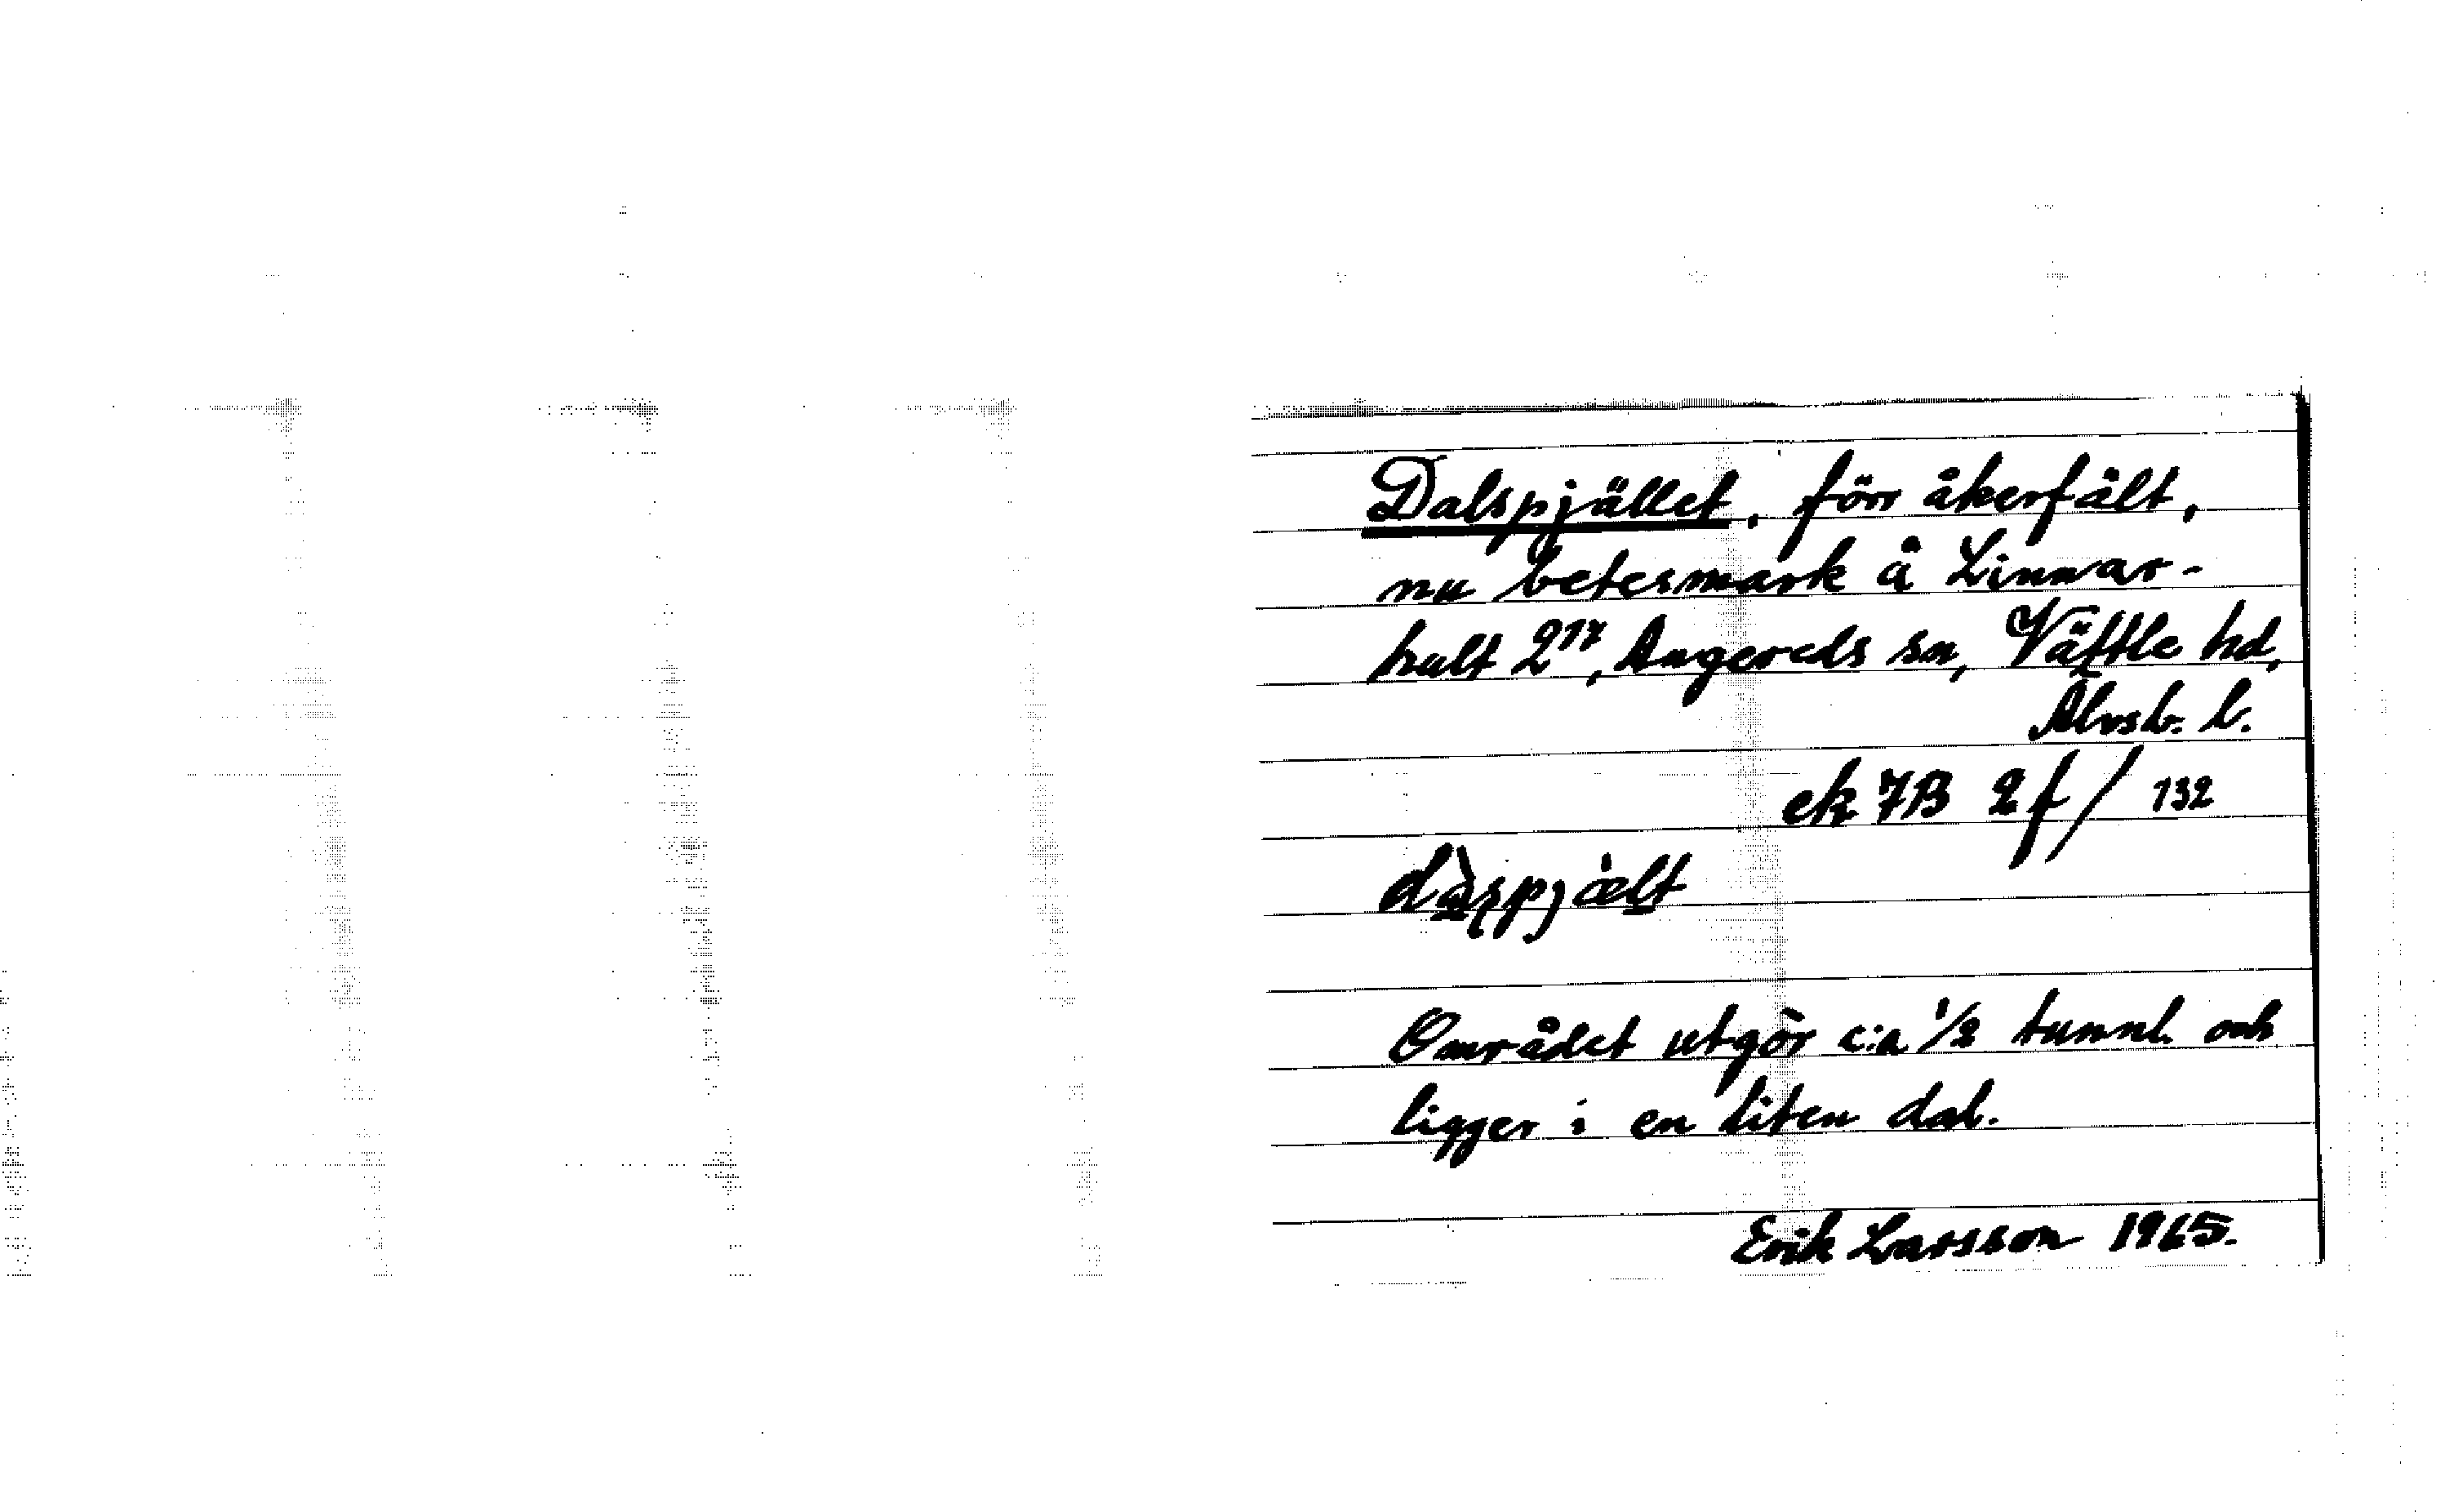 Dalspjället, förr åkerfält,
nu betesmark å Linnar-
hult 2¹⁷, Angereds sn, Vättle hd,
Älvsb. l.
ek 7B 2f / 132
Området utgör c:a 1/2 tunnl. och
ligger i en liten dal.
Erik Larsson 1965.